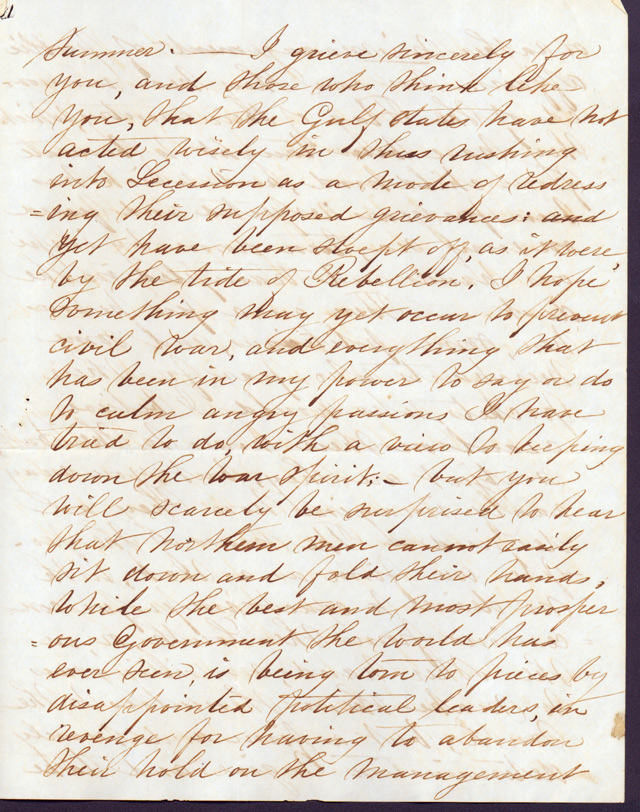 21
Summer. — I grieve sincerely for
you, and those who think like
you, that the Gulf States have not
acted wisely in thus rushing
into Secession as a mode of redress
=ing their supposed grievances: and
yet have been swept off, as it were,
by the tide of Rebellion. I hope
something may yet occur to prevent
civil war, and everything that
has been in my power to say or do
to calm angry passions I have
tried to do, with a view to keeping
down the war spirit; – but you
will scarcely be surprised to hear
that northern men cannot easily
sit down and fold their hands,
while the best and most prosper
=ous Government the world has
ever seen, is being torn to pieces by
disappointed political leaders, in
revenge for having to abandon
their hold on the management